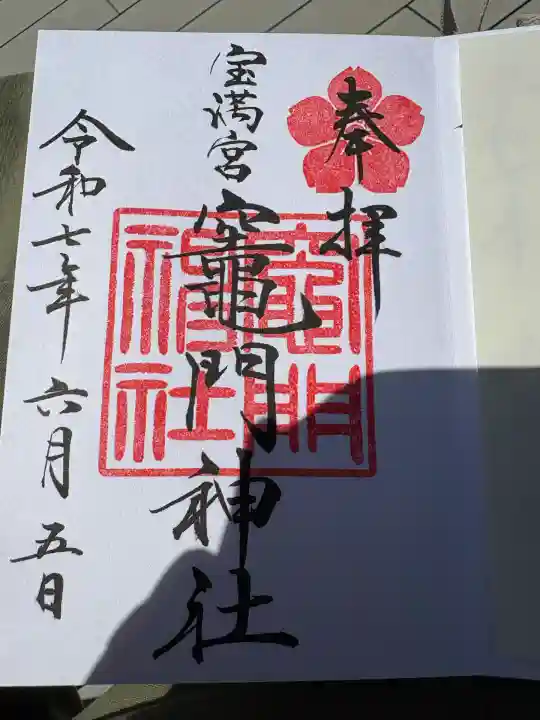 奉拝
宝満宮
竈門神社
令和七年六月五日
竈門
神社